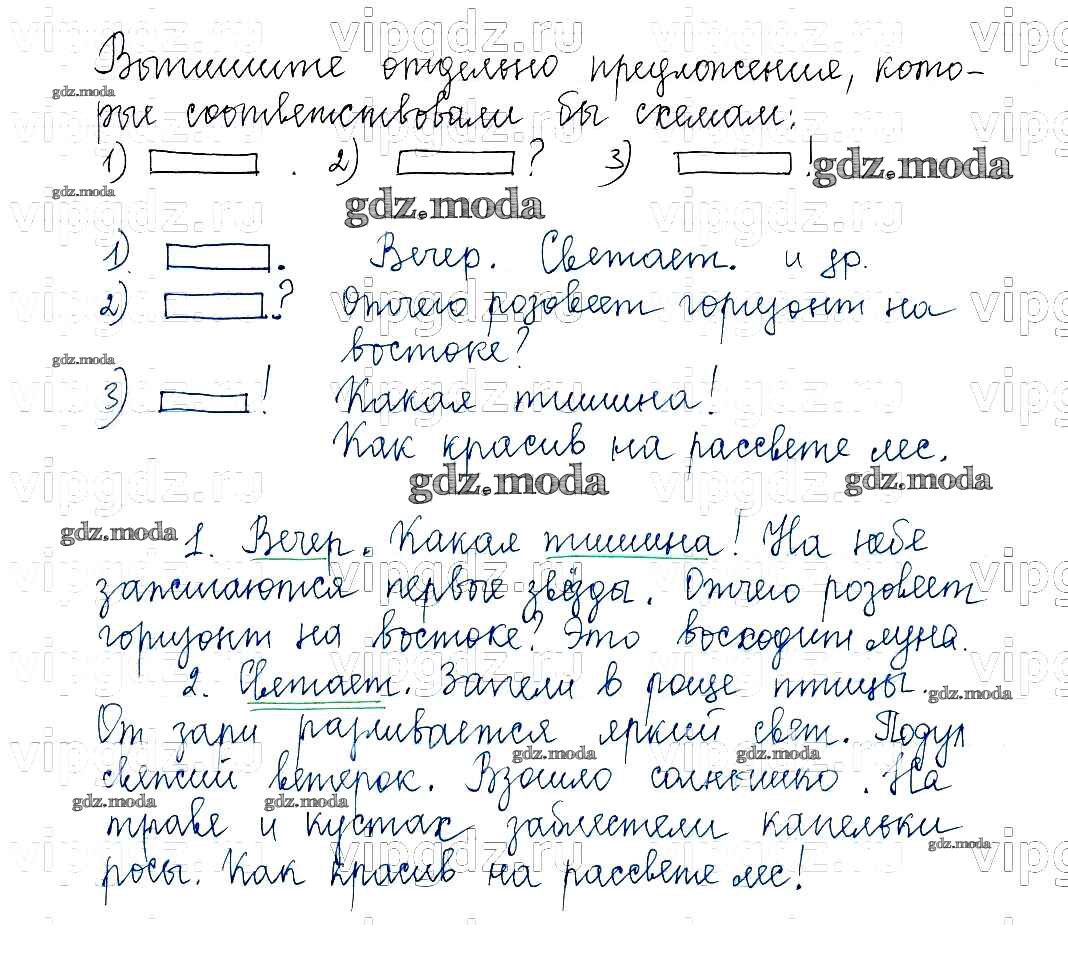 Выпишите отдельно предложения, кото-
рые соответствовали бы схемам:
1) . 2) ? 3) !
1). . Вечер. Светает. и др.
2) .? Отчего розовеет горизонт на
востоке?
3) ! Какая тишина!
Как красив на рассвете лес.
1. Вечер. Какая тишина! На небе
зажигаются первые звёзды. Отчего розовеет
горизонт на востоке? Это восходит луна.
2. Светает. Запели в роще птицы.
От зари разливается яркий свет. Подул
свежий ветерок. Взошло солнышко. На
траве и кустах заблестели капельки
росы. Как красив на рассвете лес!
vipgdz.ru
gdz.moda